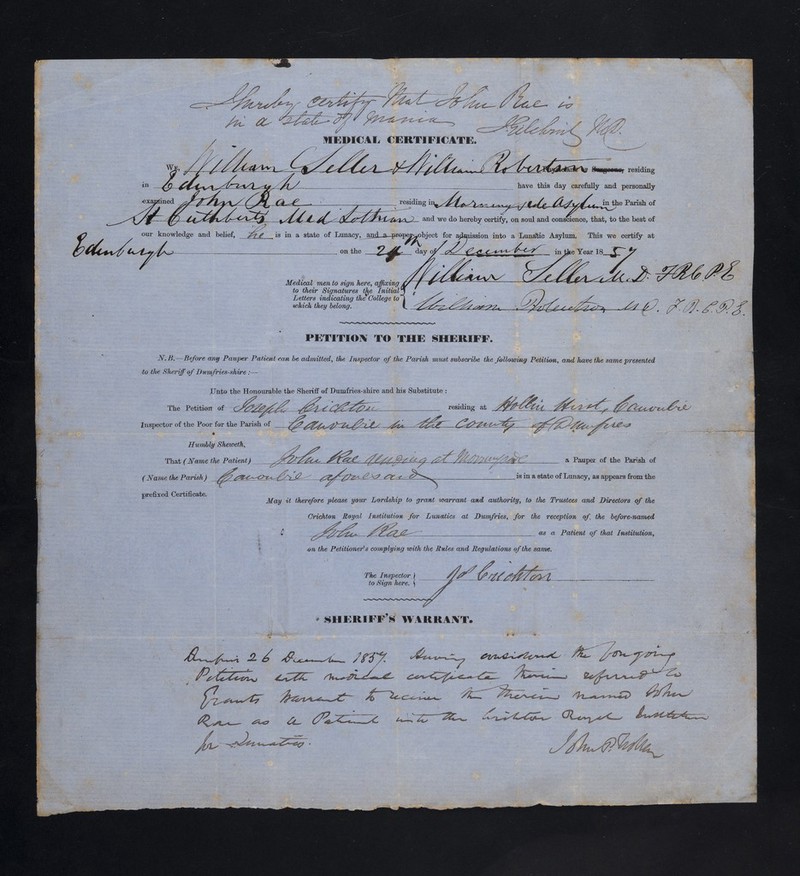 I hereby certify that John Rae is
in a state of mania
M.D.
MEDICAL CERTIFICATE.
We, William Seller & William Robertson residing
in Edinburgh have this day carefully and personally
examined John Rae residing in Morningside Asylum in the Parish of
St Cuthberts Mid Lothian and we do hereby certify, on soul and conscience, that, to the best of
our knowledge and belief, he is in a state of Lunacy, and a proper object for admission into a Lunatic Asylum. This we certify at
Edinburgh on the 24th day of December in the Year 1857
Medical men to sign here, affixing
to their Signatures the Initial
Letters indicating the College to
which they belong.
William Seller M.D. F.R.C.P.E
William Robertson M.D. F.R.C.P.E.
PETITION TO THE SHERIFF.
N.B.—Before any Pauper Patient can be admitted, the Inspector of the Parish must subscribe the following Petition, and have the same presented
to the Sheriff of Dumfries-shire:—
Unto the Honourable the Sheriff of Dumfries-shire and his Substitute:
The Petition of Joseph Crichton residing at Hollin Hirst, Canonbie
Inspector of the Poor for the Parish of Canonbie in the County of Dumfries
Humbly Sheweth,
That (Name the Patient) John Rae residing at Morningside a Pauper of the Parish of
(Name the Parish) Canonbie aforesaid is in a state of Lunacy, as appears from the
prefixed Certificate.
May it therefore please your Lordship to grant warrant and authority, to the Trustees and Directors of the
Crichton Royal Institution for Lunatics at Dumfries, for the reception of the before-named
John Rae as a Patient of that Institution,
on the Petitioner's complying with the Rules and Regulations of the same.
The Inspector
to Sign here.
Jos Crichton
SHERIFF'S WARRANT.
Dumfries 26 December 1857. Having considered the foregoing
Petition with medical certificate therein referred to
Grants Warrant to receive the therein named John
Rae as a Patient into the Crichton Royal Institution
for Lunatics.
John P.